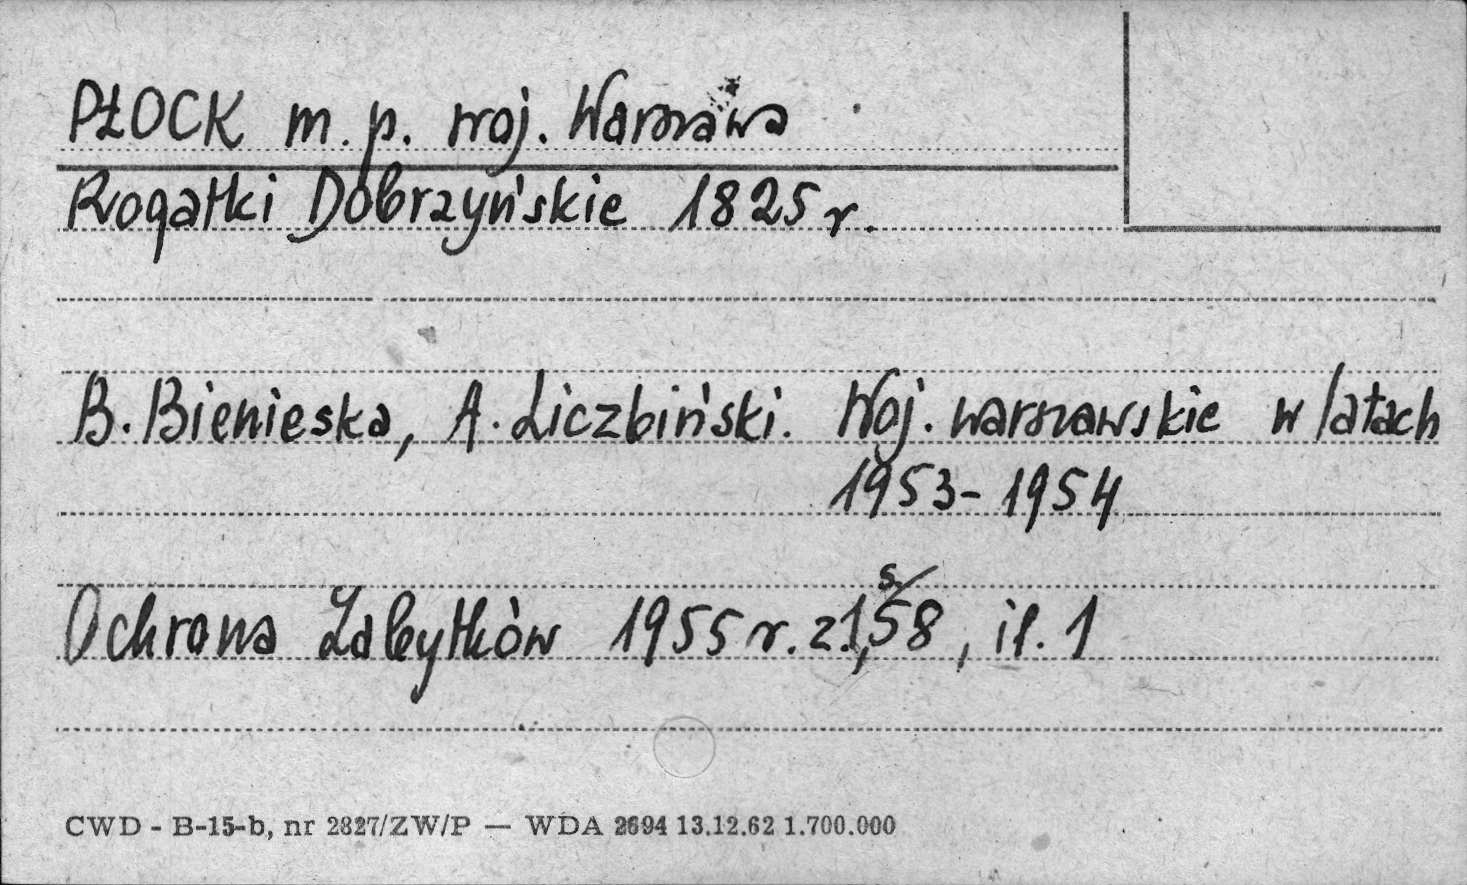 PŁOCK m. p. woj. Warszawa
Rogatki Dobrzyńskie 1825 r.
B. Bienieska, A. Liczbiński. Woj. warszawskie w latach
1953-1954
Ochrona Zabytków 1955 r. z.1, s. 58, il. 1
CWD - B-15-b, nr 2827/ZW/P — WDA 2694 13.12.62 1.700.000